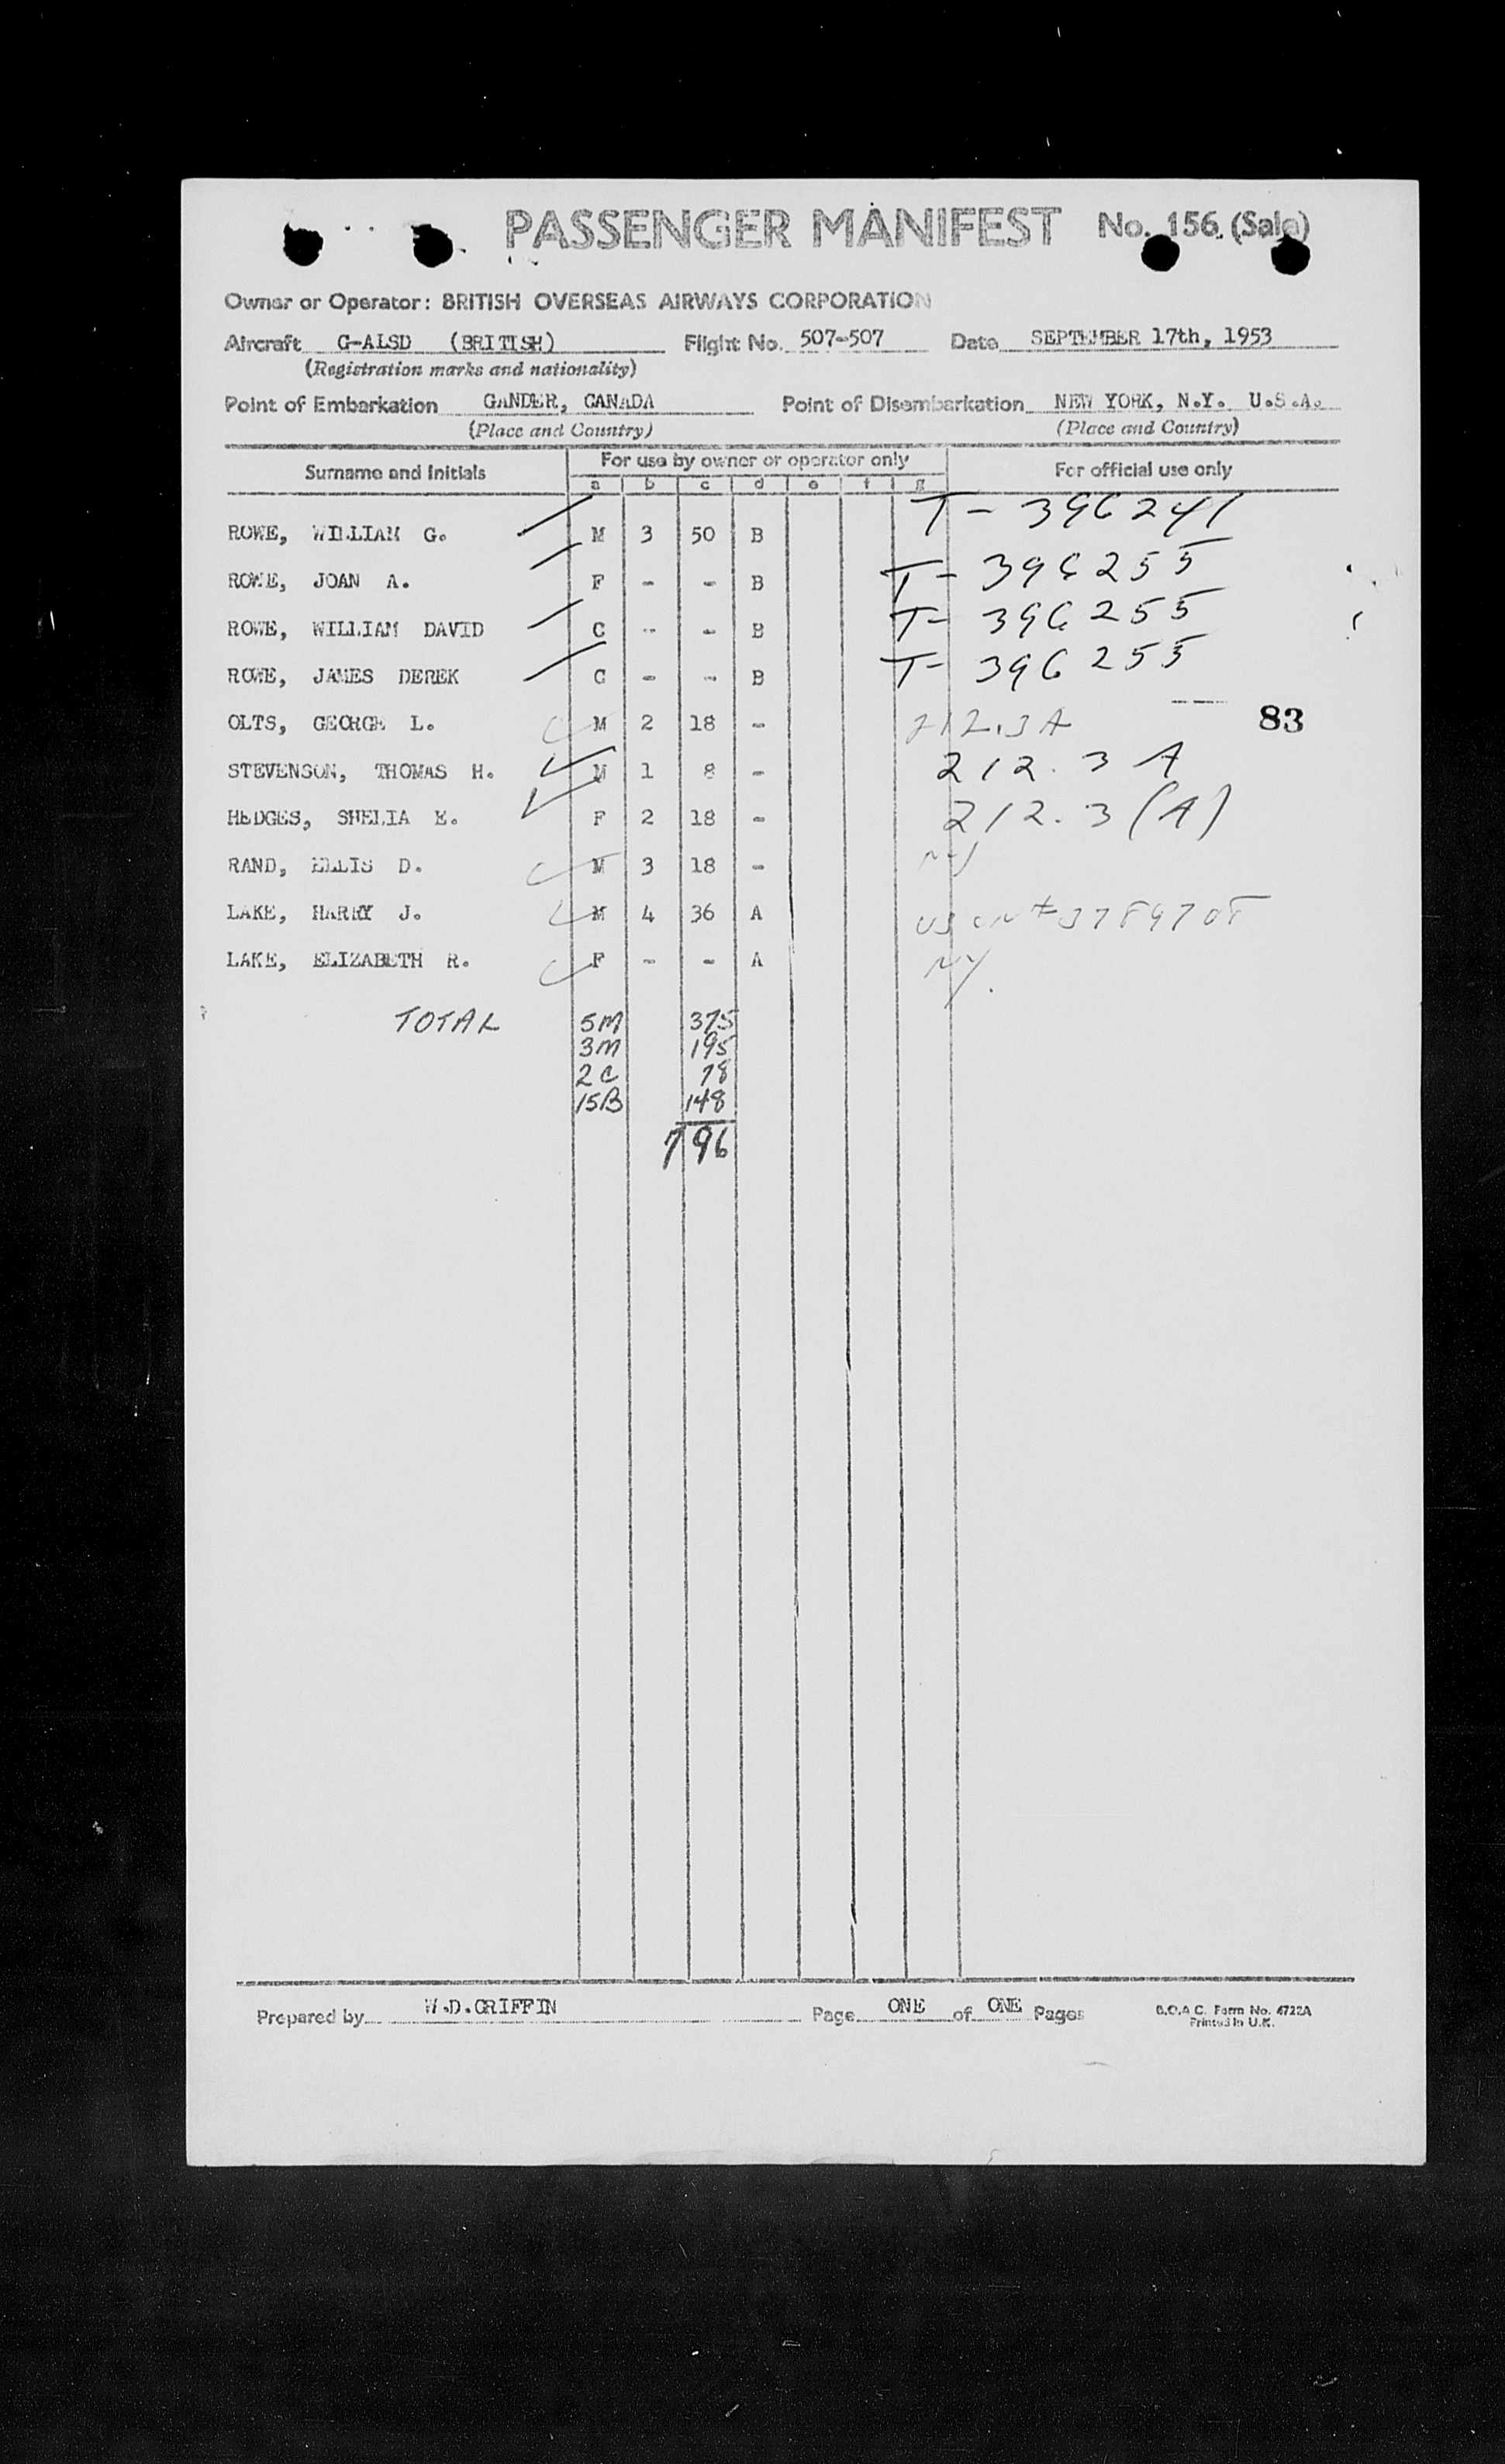 PASSENGER MANIFEST No. 156 (Sale)
Owner or Operator: BRITISH OVERSEAS AIRWAYS CORPORATION
Aircraft G-ALSD (BRITISH) Flight No. 507-507 Date SEPTEMBER 17th, 1953
(Registration marks and nationality)
Point of Embarkation GANDER, CANADA Point of Disembarkation NEW YORK, N.Y. U.S.A.
(Place and Country) (Place and Country)
Surname and Initials For use by owner or operator only For official use only
a b c d e f g
ROWE, WILLIAM G. M 3 50 B T- 396241
ROWE, JOAN A. F - - B T- 396255
ROWE, WILLIAM DAVID C - - B T- 396255
ROWE, JAMES DEREK C - - B T- 396255
OLTS, GEORGE L. M 2 18 - 212.3A 83
STEVENSON, THOMAS H. M 1 8 - 212.3 A
HEDGES, SHELIA E. F 2 18 - 212.3 (A)
RAND, ELLIS D. M 3 18 - NY
LAKE, HARRY J. M 4 36 A
LAKE, ELIZABETH R. F - - A NY.
TOTAL 5M 375
3M 195
2C 78
15B 148
796
Prepared by W.D.GRIFFIN Page ONE of ONE Pages B.O.A.C. Form No. 4722A
Printed in U.K.